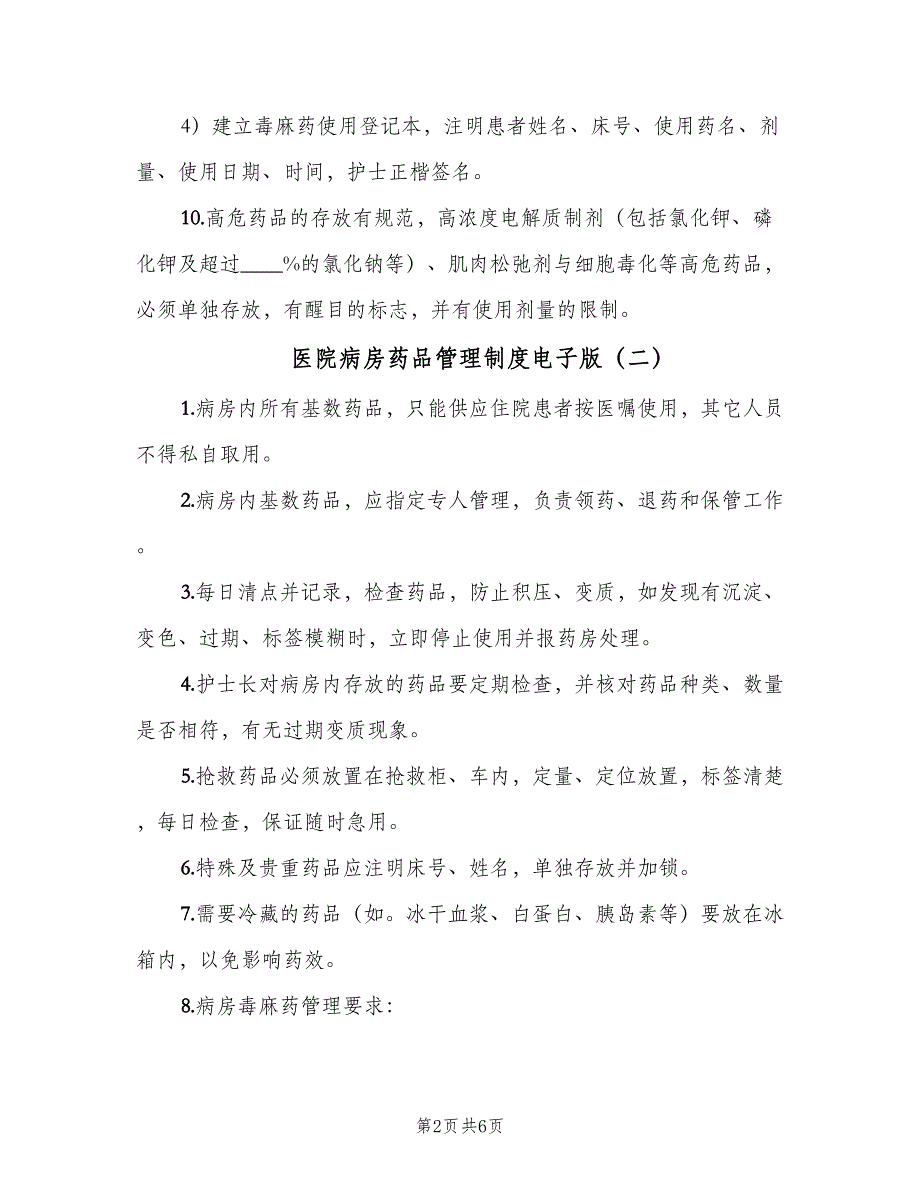 4）建立毒麻药使用登记本，注明患者姓名、床号、使用药名、剂
量、使用日期、时间，护士正楷签名。
10.高危药品的存放有规范，高浓度电解质制剂（包括氯化钾、磷
化钾及超过____%的氯化钠等）、肌肉松弛剂与细胞毒化等高危药品，
必须单独存放，有醒目的标志，并有使用剂量的限制。
医院病房药品管理制度电子版（二）
1.病房内所有基数药品，只能供应住院患者按医嘱使用，其它人员
不得私自取用。
2.病房内基数药品，应指定专人管理，负责领药、退药和保管工作
。
3.每日清点并记录，检查药品，防止积压、变质，如发现有沉淀、
变色、过期、标签模糊时，立即停止使用并报药房处理。
4.护士长对病房内存放的药品要定期检查，并核对药品种类、数量
是否相符，有无过期变质现象。
5.抢救药品必须放置在抢救柜、车内，定量、定位放置，标签清楚
，每日检查，保证随时急用。
6.特殊及贵重药品应注明床号、姓名，单独存放并加锁。
7.需要冷藏的药品（如。冰干血浆、白蛋白、胰岛素等）要放在冰
箱内，以免影响药效。
8.病房毒麻药管理要求：
第2页 共6页